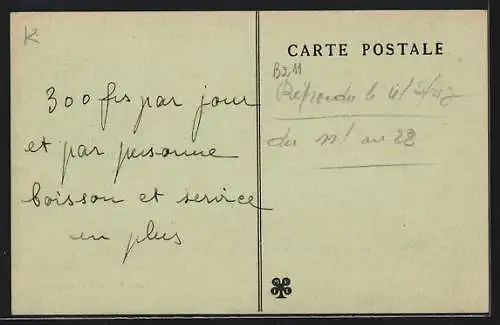 K
300 frs par jour
et par personne
boisson et service
en plus
CARTE POSTALE
B2,11
Répondu le 4/5/47
du 11/ au 28